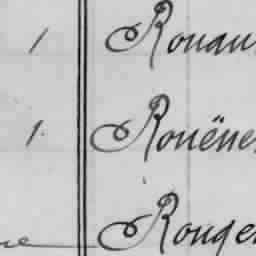 1 Rouau
1. Rouëne
Rouge